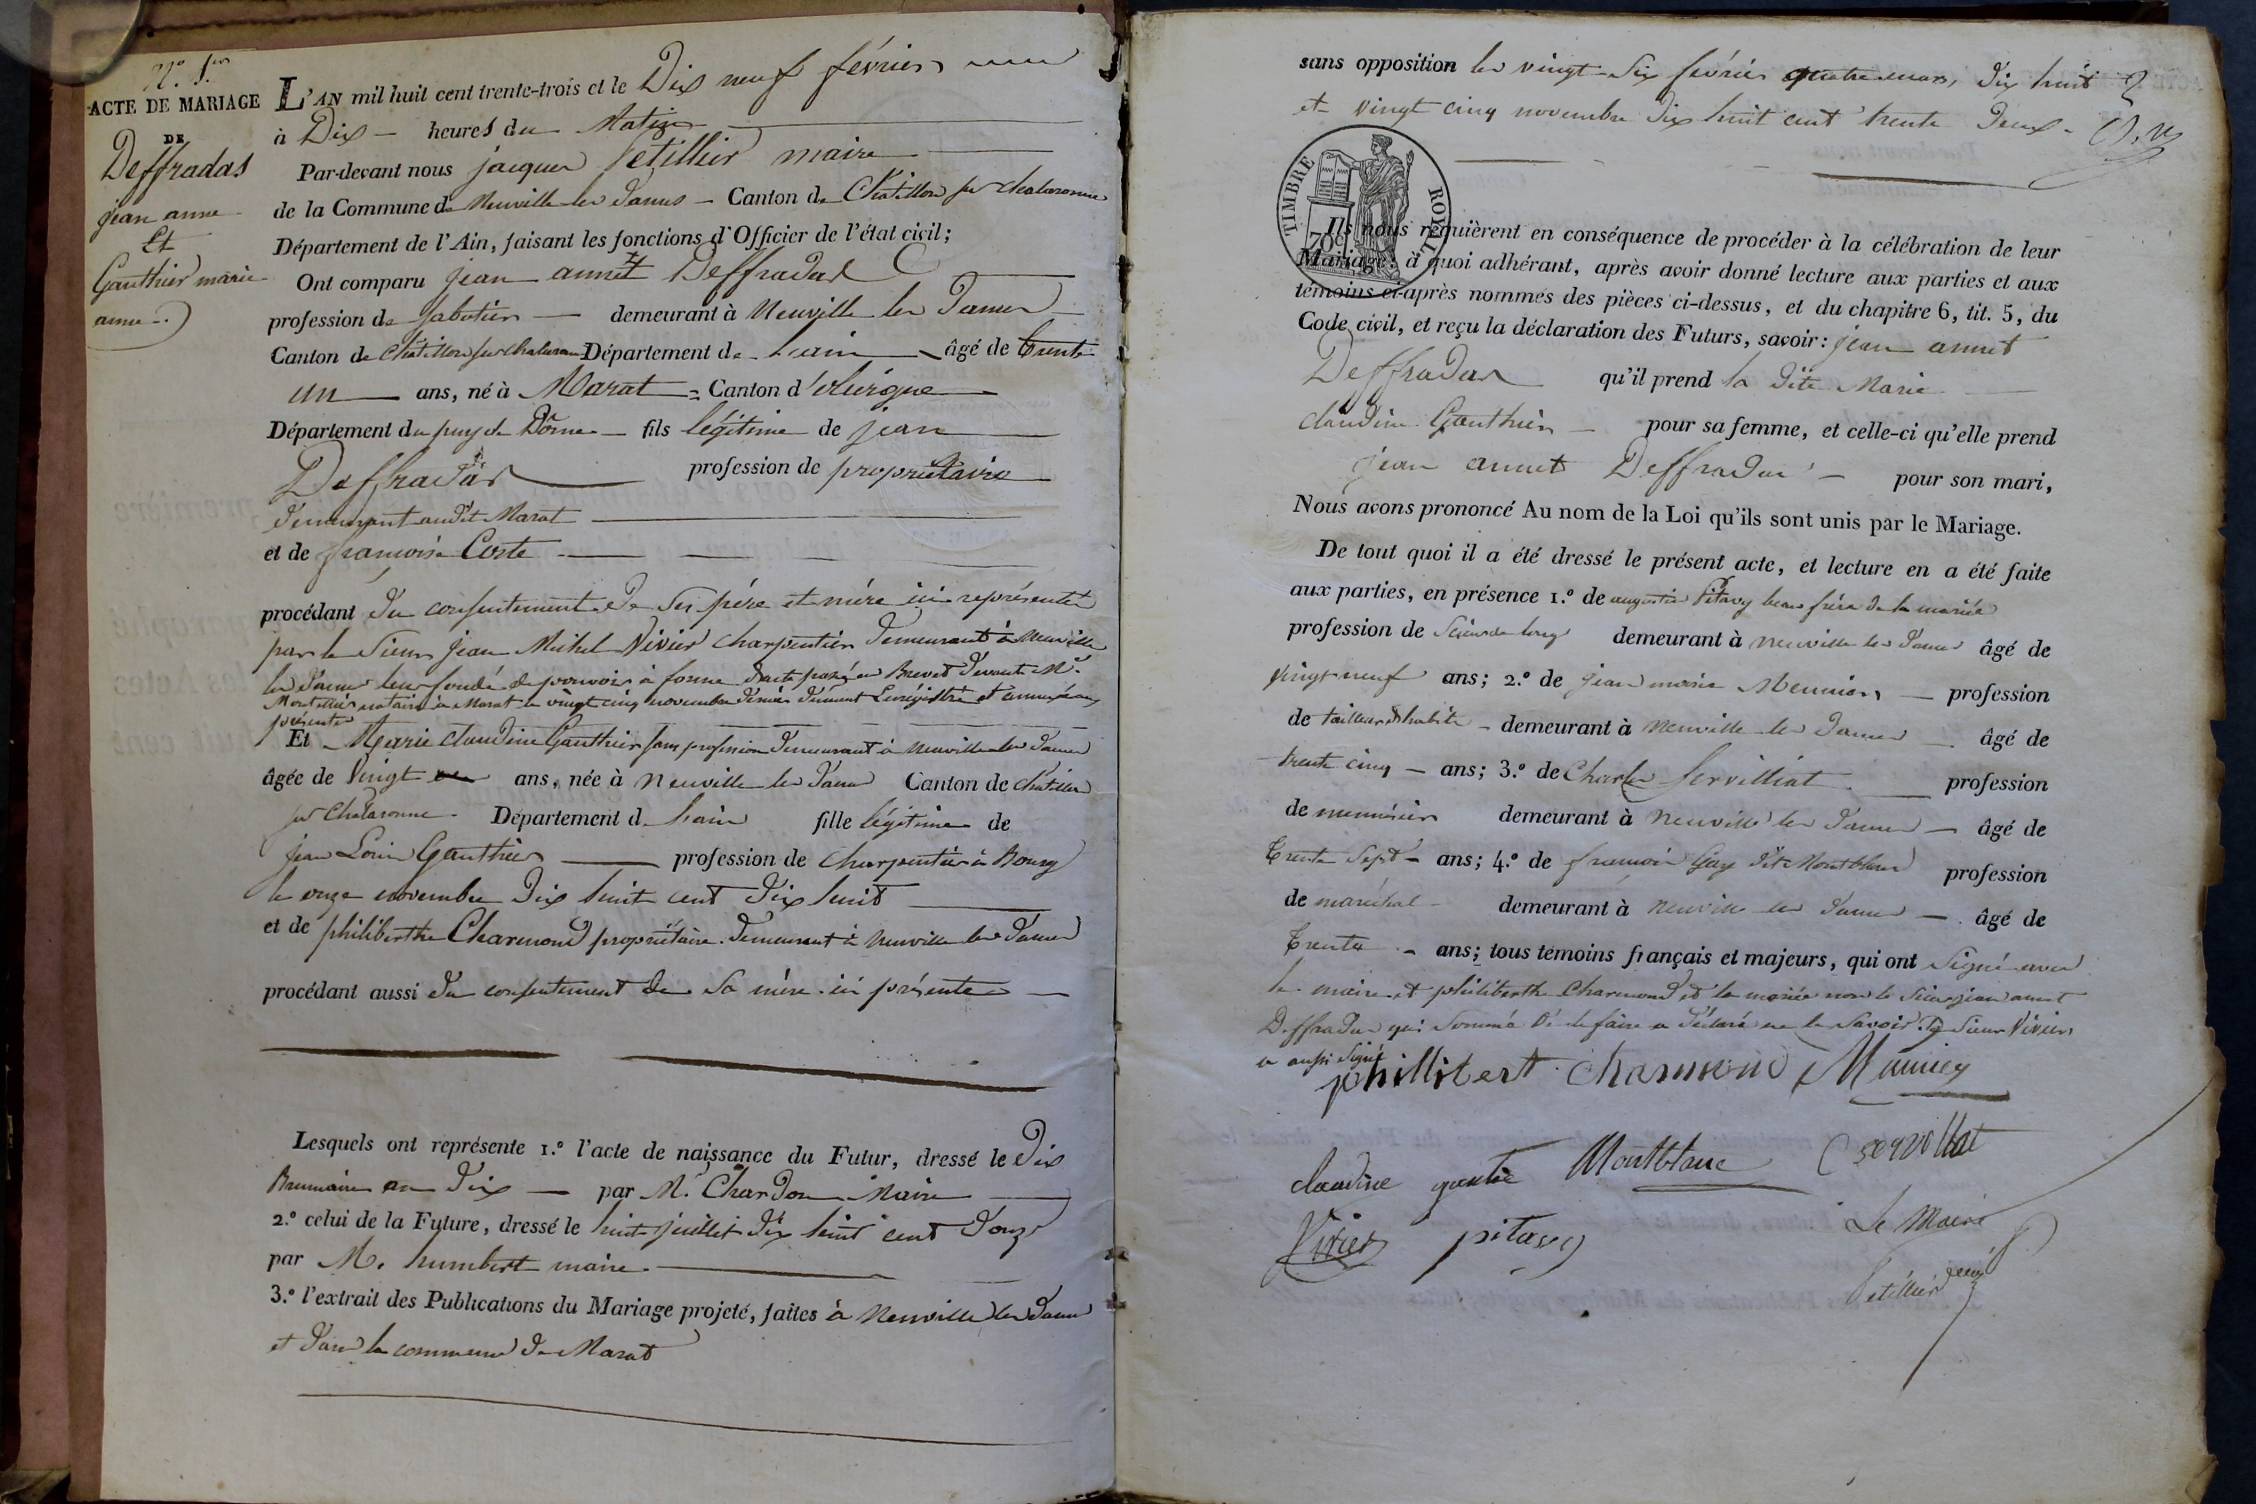 N.º 1.er
ACTE DE MARIAGE
DE
Deffradas
jean anne
Et
Gauthier marie
anne
L'AN mil huit cent trente-trois et le Dix neuf février
à Dix heures du Matin
Par-devant nous jacques Petillier maire
de la Commune de Neuville les Dames Canton de Chatillon sur chalaronne
Département de l'Ain, faisant les fonctions d'Officier de l'état civil;
Ont comparu jean annet Deffradas
profession de sabotier demeurant à Neuville les Dames
Canton de Chatillon sur chalaronne Département de L'ain âgé de trente
un ans, né à Marat Canton d'oliergue
Département du puy de Dôme fils légitime de jean
Deffradas profession de propriétaire
demeurant audit Marat
et de francoise Coste
procédant du consentement de ses père et mère ici représentés
par le sieur jean Michel Vivier charpentier demeurant à Neuville
les Dames leur fondé de pouvoir à forme d'acte passé en Brevet devant M.e
notaire à Marat le vingt cinq novembre dernier dument Enrégistré et annexé aux
présentes
Et Marie claudine Gauthier sans profession demeurant à neuville les Dames
âgée de vingt ans, née à Neuville les Dames Canton de chatillon
sur Chalaronne Département de L'ain fille légitime de
jean Louis Gauthier profession de charpentier à Bourg
le onze novembre Dix huit cent Dix huit
et de philiberthe Charmond propriétaire demeurant à Neuville les Dames
procédant aussi du consentement de sa mère ici présente
Lesquels ont représenté 1.º l'acte de naissance du Futur, dressé le Dix
Brumaire an Dix par M. Chardon Maire
2.º celui de la Future, dressé le huit juillet Dix huit cent Douze
par M. humbert maire
3.º l'extrait des Publications du Mariage projeté, faites à Neuville les Dames
et dans la commune de Marat
sans opposition les vingt six février quatre mars, Dix huit
et vingt cinq novembre Dix huit cent trente Deux
TIMBRE ROYAL
70c
Ils nous requièrent en conséquence de procéder à la célébration de leur
Mariage: à quoi adhérant, après avoir donné lecture aux parties et aux
témoins ci-après nommés des pièces ci-dessus, et du chapitre 6, tit. 5, du
Code civil, et reçu la déclaration des Futurs, savoir: jean annet
Deffradas qu'il prend la dite Marie
claudine Gauthier pour sa femme, et celle-ci qu'elle prend
jean annet Deffradas pour son mari,
Nous avons prononcé Au nom de la Loi qu'ils sont unis par le Mariage.
De tout quoi il a été dressé le présent acte, et lecture en a été faite
aux parties, en présence 1.º de augustin Pitavy beau frère de la mariée
profession de scieur de long demeurant à neuville les Dames âgé de
vingt neuf ans; 2.º de jean marie Meunier profession
de tailleur d'habits demeurant à Neuville les Dames âgé de
trente cinq ans; 3.º de Charles Servilliat profession
de menuisier demeurant à Neuville les Dames âgé de
trente sept ans; 4.º de francois Gay dit Montblanc profession
de maréchal demeurant à Neuville les Dames âgé de
trente ans; tous témoins français et majeurs, qui ont signé avec
le maire et philiberthe Charmond et la mariée non le sieur jean annet
Deffradas qui sommé de le faire a déclaré ne le savoir. Le sieur Vivier
a aussi signé
phillibert charmond Munier
claudine gautie Montblanc C servilliat
Vivier pitavy
Le Maire
Petillier